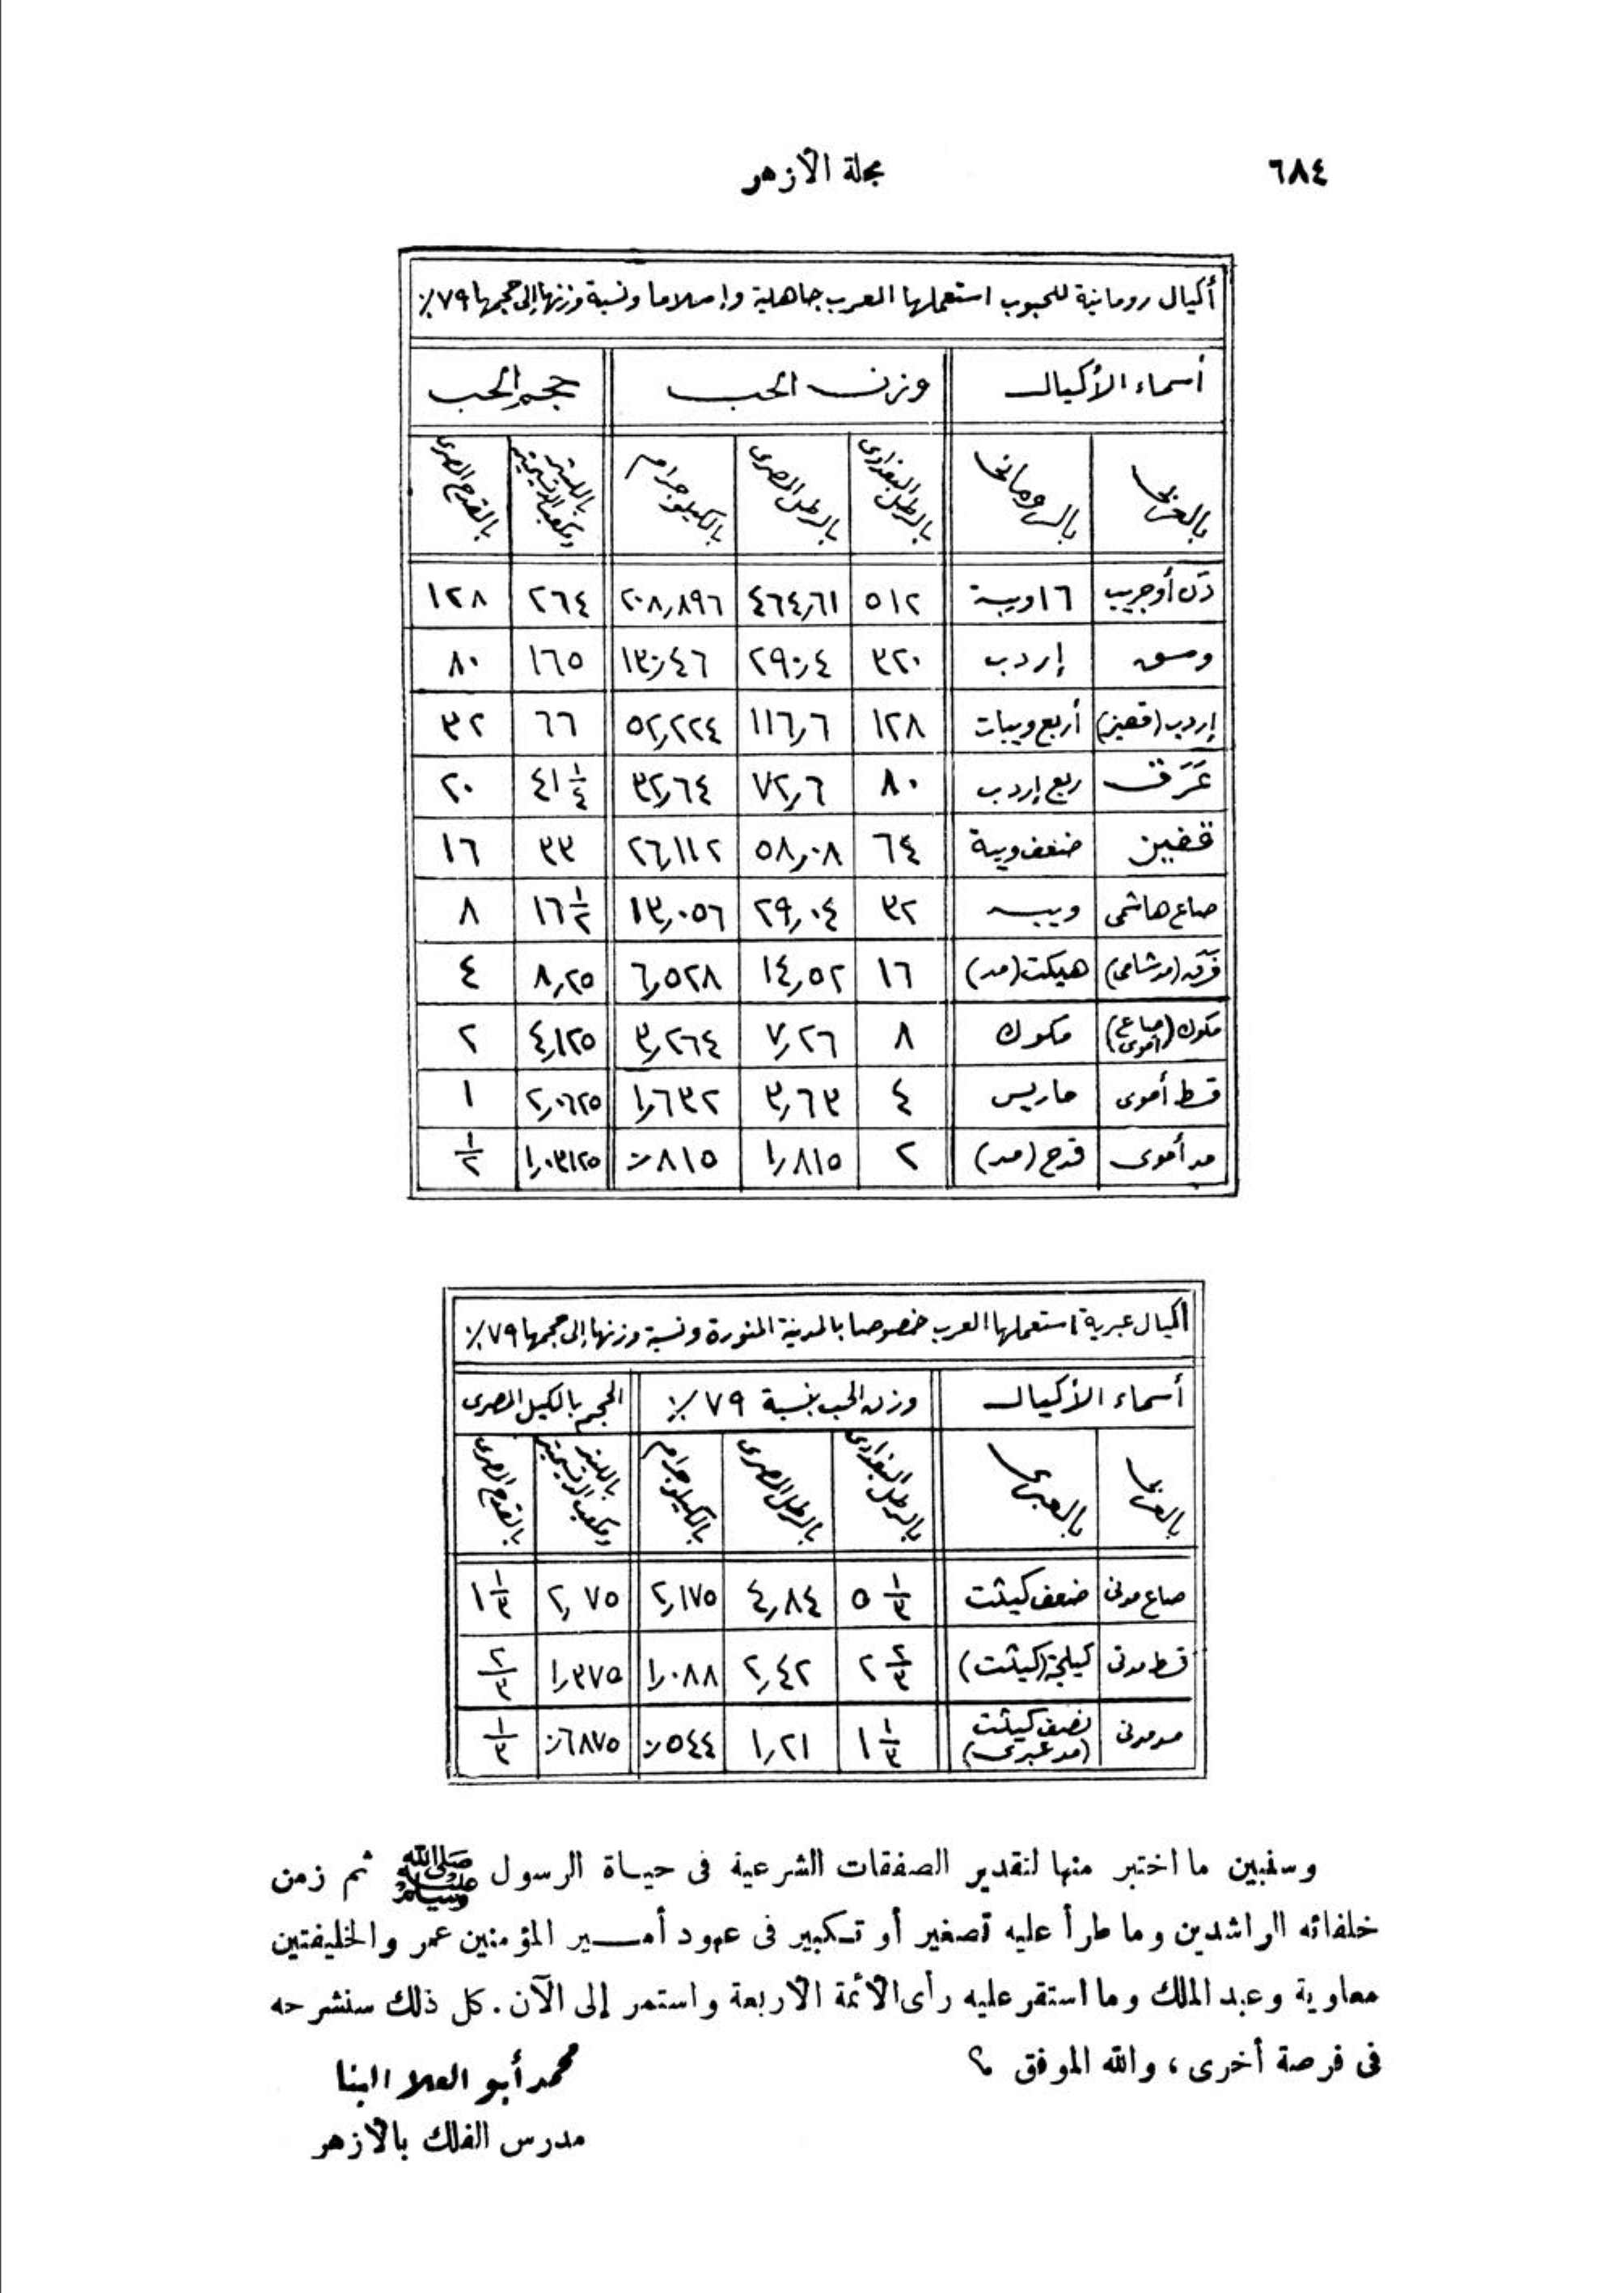 ٦٨٤
مجلة الأزهر
أكيال رومانية للحبوب استعملها العرب جاهلية وإسلاما ونسبة وزنها إلى حجمها ٧٩٪
أسماء الأكيال وزن الحب حجم الحب
بالعربى بالرومانى بالرطل البغدادى بالرطل المصرى بالكيلوجرام بالليتر ومكعب الدسيمتر بالقدح المصرى
دن أو جريب ١٦ ويبة ٥١٢ ٤٦٤٫٦١ ٢٠٨٫٨٩٦ ٢٦٤ ١٢٨
وسق إردب ٣٢٠ ٢٩٠٫٤ ١٣٠٫٤٦ ١٦٥ ٨٠
إردب (قفيز) أربع ويبات ١٢٨ ١١٦٫٦ ٥٢٫٢٢٤ ٦٦ ٣٢
عَرَق ربع إردب ٨٠ ٧٢٫٦ ٣٢٫٦٤ ٤١ ١/٤ ٢٠
قفيز ضعف ويبة ٦٤ ٥٨٫٠٨ ٢٦٫١١٢ ٣٣ ١٦
صاع هاشمى ويبه ٣٢ ٢٩٫٠٤ ١٣٫٠٥٦ ١٦ ١/٢ ٨
فَرَق (مد شامى) هيكت (مد) ١٦ ١٤٫٥٢ ٦٫٥٢٨ ٨٫٢٥ ٤
مكوك (صاع أموى) مكوك ٨ ٧٫٢٦ ٣٫٢٦٤ ٤٫١٢٥ ٢
قسط أموى ماريس ٤ ٣٫٦٣ ١٫٦٣٢ ٢٫٠٦٢٥ ١
مد أموى قدح (مد) ٢ ١٫٨١٥ ٠٫٨١٥ ١٫٠٣١٢٥ ١/٢
أكيال عبرية استعملها العرب خصوصا بالمدينة المنورة ونسبة وزنها إلى حجمها ٧٩٪
أسماء الأكيال وزن الحب بنسبة ٧٩٪ الحجم بالكيل المصرى
بالعربى بالعبرى بالرطل البغدادى بالرطل المصرى بالكيلوجرام بالليتر ومكعب الدسيمتر بالقدح المصرى
صاع مدنى ضعف كيثت ٥ ١/٣ ٤٫٨٤ ٢٫١٧٥ ٢٫٧٥ ١ ١/٣
قسط مدنى كيلجة (كيثت) ٢ ٢/٣ ٢٫٤٢ ١٫٠٨٨ ١٫٣٧٥ ٢/٣
مد مدنى نصف كيثت (مد عبرى) ١ ١/٣ ١٫٢١ ٠٫٥٤٤ ٠٫٦٨٧٥ ١/٣
وسنبين ما اختبر منها لتقدير الصفقات الشرعية فى حياة الرسول ﷺ ثم زمن
خلفائه الراشدين وما طرأ عليه تصغير أو تكبير فى عهود أمير المؤمنين عمر والخليفتين
معاوية وعبد الملك وما استقر عليه رأى الأئمة الأربعة واستمر إلى الآن. كل ذلك سنشرحه
فى فرصة أخرى، والله الموفق ؟
محمد أبو العلا البنا
مدرس الفلك بالأزهر